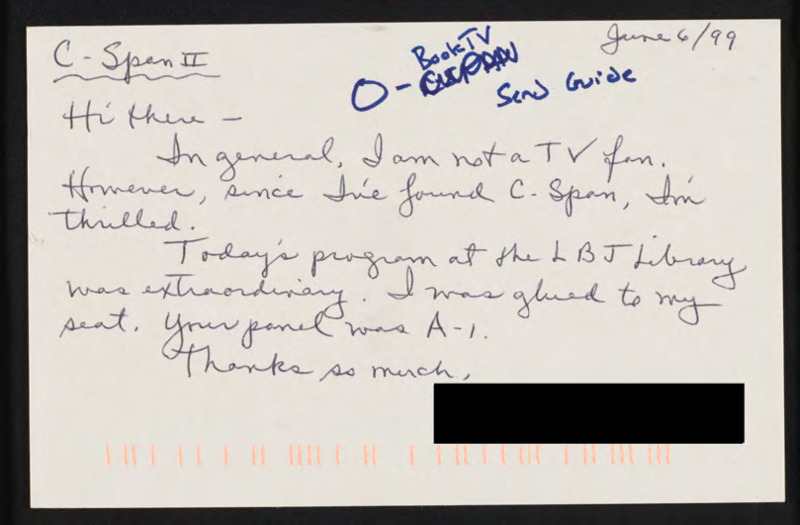 C-Span II
June 6/99
Book TV
O-
Send Guide
Hi there -
In general, I am not a TV fan.
However, since I've found C-Span, I'm
thrilled.
Today's program at the LBJ Library
was extraordinary. I was glued to my
seat. Your panel was A-1.
Thanks so much,